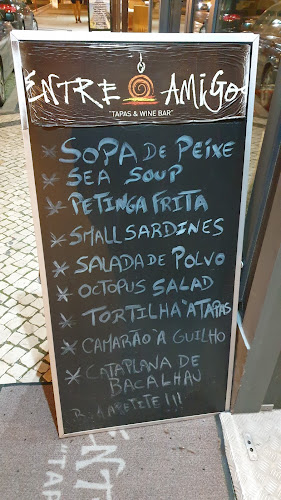 ENTRE AMIGOS
"TAPAS & WINE BAR"
* SOPA DE PEIXE
* SEA SOUP
* PETINGA FRITA
* SMALL SARDINES
* SALADA DE POLVO
* OCTOPUS SALAD
* TORTILHA À TAPAS
* CAMARÃO À GUILHO
* CATAPLANA DE
BACALHAU
APETITE!!!